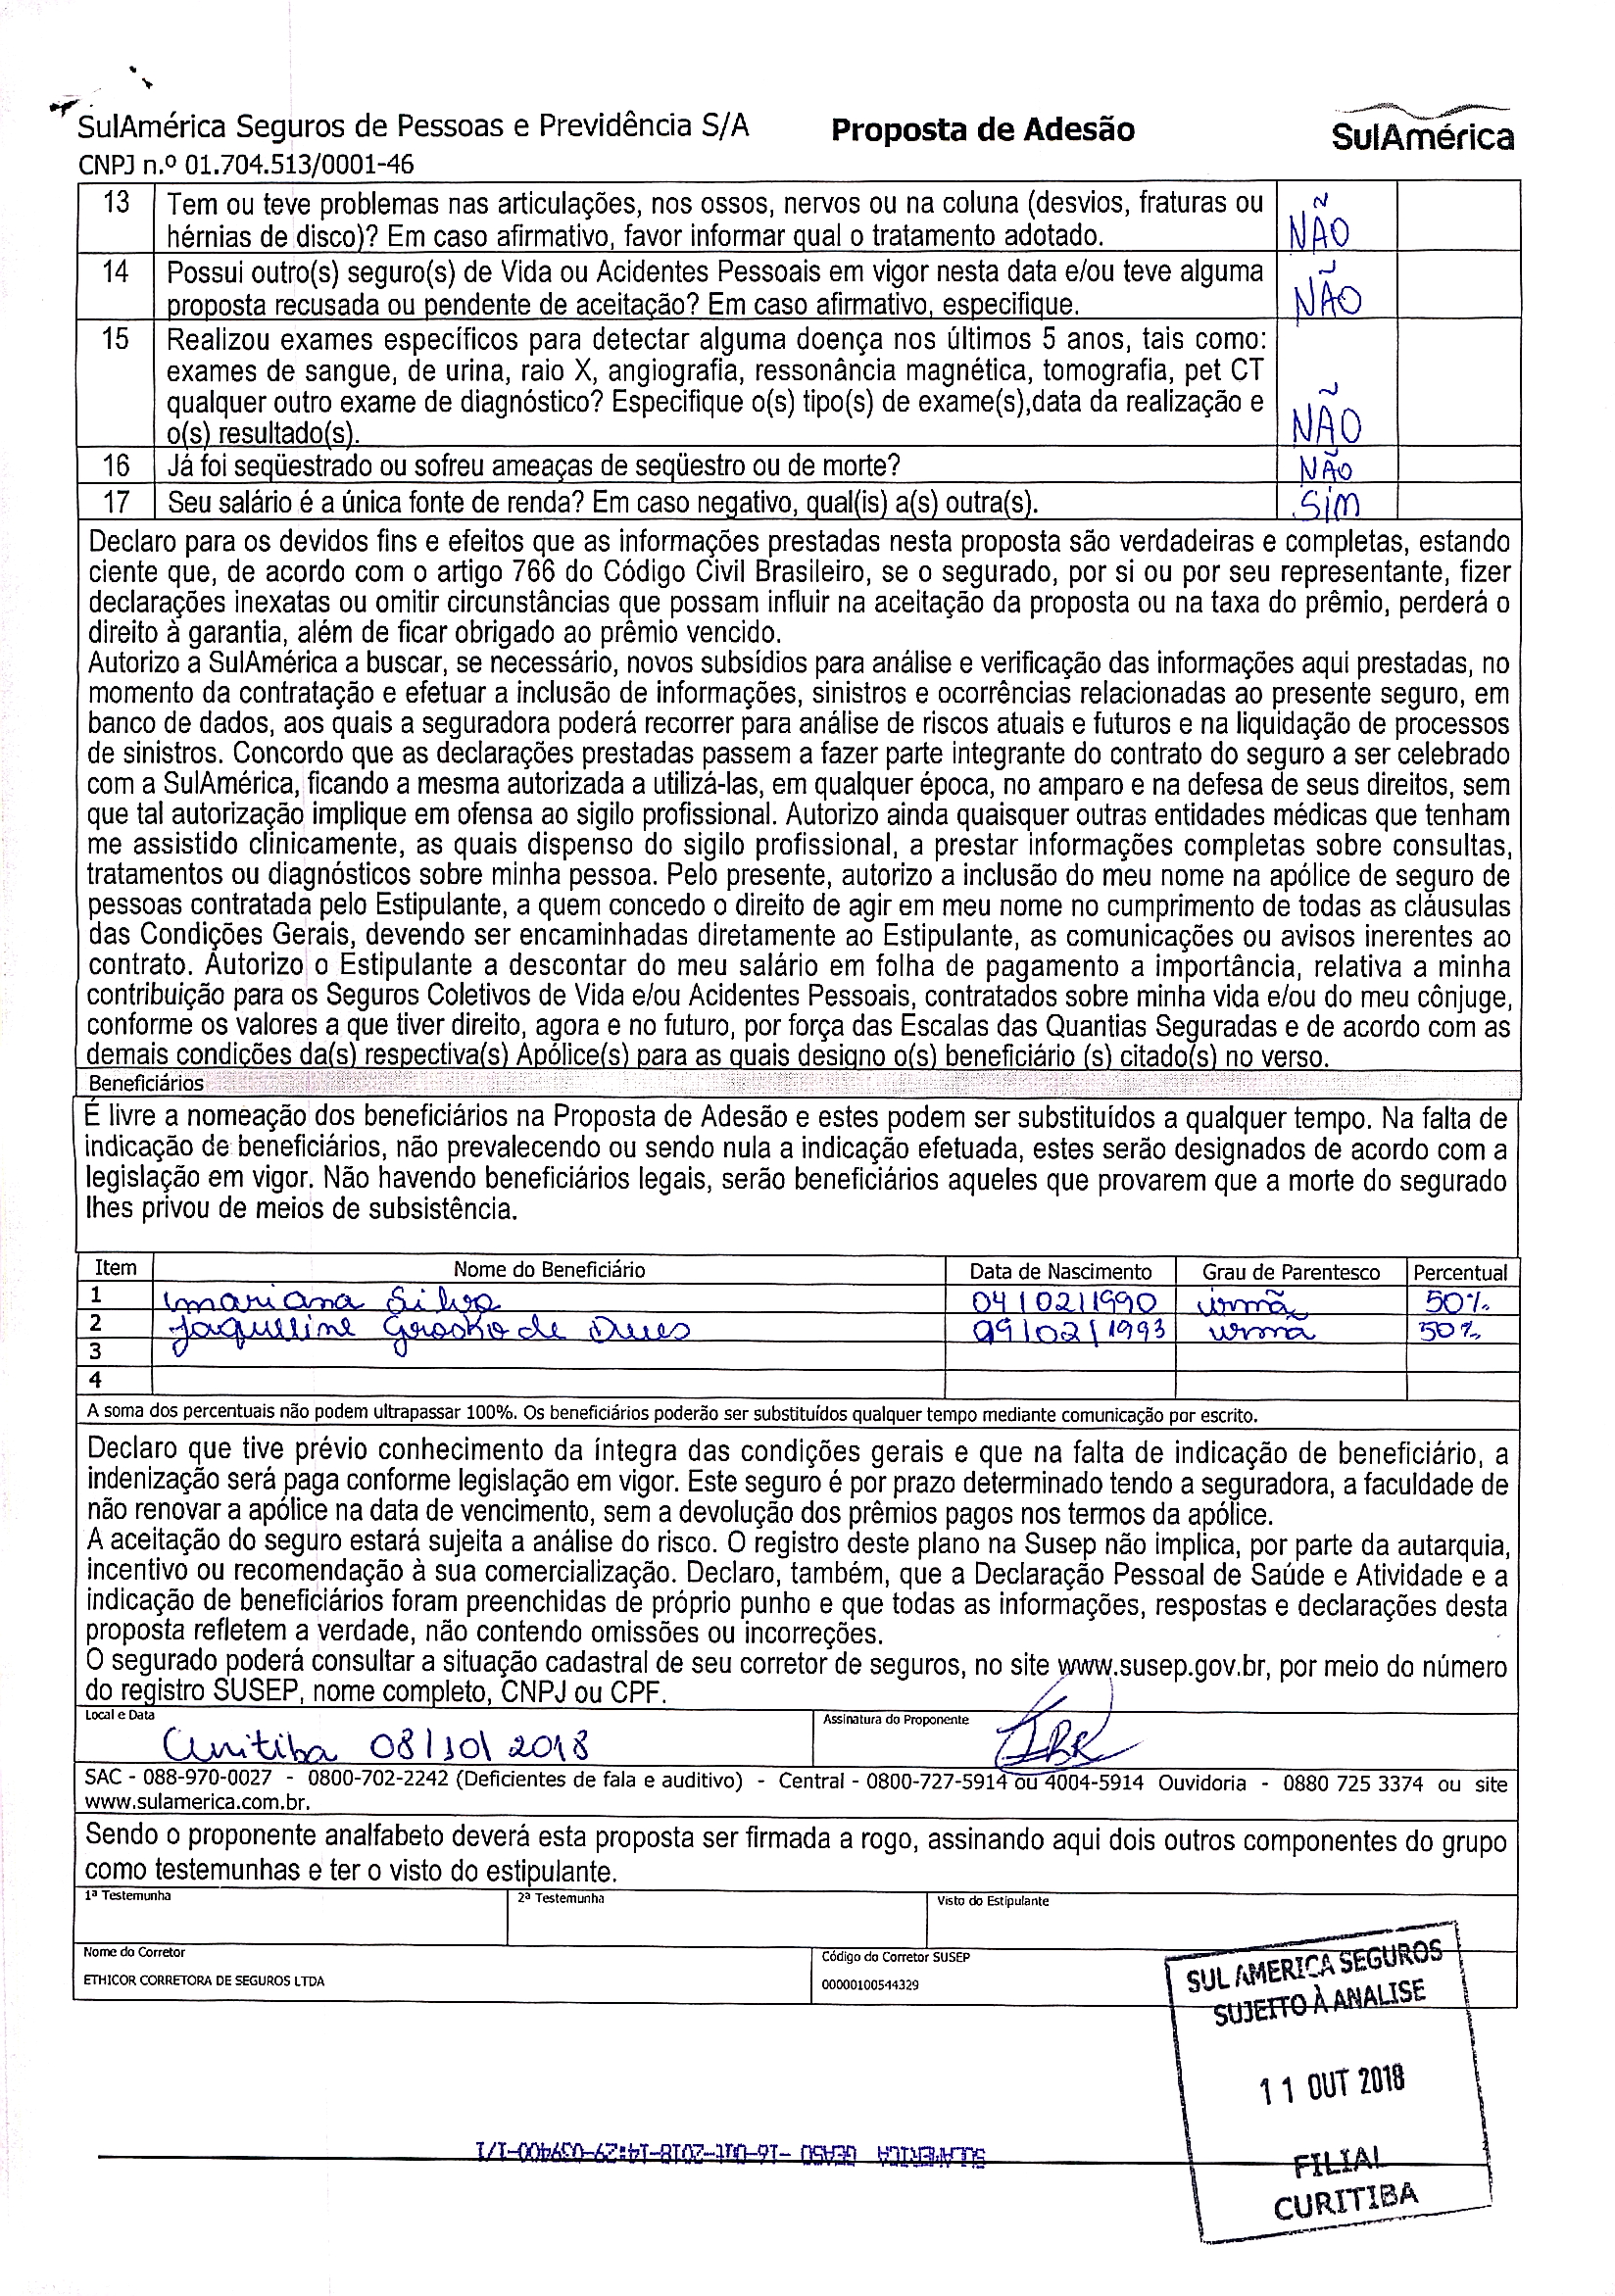 SulAmérica Seguros de Pessoas e Previdência S/A Proposta de Adesão SulAmérica
CNPJ n.º 01.704.513/0001-46
13 Tem ou teve problemas nas articulações, nos ossos, nervos ou na coluna (desvios, fraturas ou NÃO
hérnias de disco)? Em caso afirmativo, favor informar qual o tratamento adotado.
14 Possui outro(s) seguro(s) de Vida ou Acidentes Pessoais em vigor nesta data e/ou teve alguma NÃO
proposta recusada ou pendente de aceitação? Em caso afirmativo, especifique.
15 Realizou exames específicos para detectar alguma doença nos últimos 5 anos, tais como:
exames de sangue, de urina, raio X, angiografia, ressonância magnética, tomografia, pet CT
qualquer outro exame de diagnóstico? Especifique o(s) tipo(s) de exame(s),data da realização e NÃO
o(s) resultado(s).
16 Já foi seqüestrado ou sofreu ameaças de seqüestro ou de morte? NÃO
17 Seu salário é a única fonte de renda? Em caso negativo, qual(is) a(s) outra(s). Sim
Declaro para os devidos fins e efeitos que as informações prestadas nesta proposta são verdadeiras e completas, estando
ciente que, de acordo com o artigo 766 do Código Civil Brasileiro, se o segurado, por si ou por seu representante, fizer
declarações inexatas ou omitir circunstâncias que possam influir na aceitação da proposta ou na taxa do prêmio, perderá o
direito à garantia, além de ficar obrigado ao prêmio vencido.
Autorizo a SulAmérica a buscar, se necessário, novos subsídios para análise e verificação das informações aqui prestadas, no
momento da contratação e efetuar a inclusão de informações, sinistros e ocorrências relacionadas ao presente seguro, em
banco de dados, aos quais a seguradora poderá recorrer para análise de riscos atuais e futuros e na liquidação de processos
de sinistros. Concordo que as declarações prestadas passem a fazer parte integrante do contrato do seguro a ser celebrado
com a SulAmérica, ficando a mesma autorizada a utilizá-las, em qualquer época, no amparo e na defesa de seus direitos, sem
que tal autorização implique em ofensa ao sigilo profissional. Autorizo ainda quaisquer outras entidades médicas que tenham
me assistido clinicamente, as quais dispenso do sigilo profissional, a prestar informações completas sobre consultas,
tratamentos ou diagnósticos sobre minha pessoa. Pelo presente, autorizo a inclusão do meu nome na apólice de seguro de
pessoas contratada pelo Estipulante, a quem concedo o direito de agir em meu nome no cumprimento de todas as cláusulas
das Condições Gerais, devendo ser encaminhadas diretamente ao Estipulante, as comunicações ou avisos inerentes ao
contrato. Autorizo o Estipulante a descontar do meu salário em folha de pagamento a importância, relativa a minha
contribuição para os Seguros Coletivos de Vida e/ou Acidentes Pessoais, contratados sobre minha vida e/ou do meu cônjuge,
conforme os valores a que tiver direito, agora e no futuro, por força das Escalas das Quantias Seguradas e de acordo com as
demais condições da(s) respectiva(s) Apólice(s) para as quais designo o(s) beneficiário (s) citado(s) no verso.
Beneficiários
É livre a nomeação dos beneficiários na Proposta de Adesão e estes podem ser substituídos a qualquer tempo. Na falta de
indicação de beneficiários, não prevalecendo ou sendo nula a indicação efetuada, estes serão designados de acordo com a
legislação em vigor. Não havendo beneficiários legais, serão beneficiários aqueles que provarem que a morte do segurado
lhes privou de meios de subsistência.
Item Nome do Beneficiário Data de Nascimento Grau de Parentesco Percentual
1 mariana Silva 04/02/1990 irmã 50%
2 Jaqueline de 09/02/1993 irmã 50%
3
4
A soma dos percentuais não podem ultrapassar 100%. Os beneficiários poderão ser substituídos qualquer tempo mediante comunicação por escrito.
Declaro que tive prévio conhecimento da íntegra das condições gerais e que na falta de indicação de beneficiário, a
indenização será paga conforme legislação em vigor. Este seguro é por prazo determinado tendo a seguradora, a faculdade de
não renovar a apólice na data de vencimento, sem a devolução dos prêmios pagos nos termos da apólice.
A aceitação do seguro estará sujeita a análise do risco. O registro deste plano na Susep não implica, por parte da autarquia,
incentivo ou recomendação à sua comercialização. Declaro, também, que a Declaração Pessoal de Saúde e Atividade e a
indicação de beneficiários foram preenchidas de próprio punho e que todas as informações, respostas e declarações desta
proposta refletem a verdade, não contendo omissões ou incorreções.
O segurado poderá consultar a situação cadastral de seu corretor de seguros, no site www.susep.gov.br, por meio do número
do registro SUSEP, nome completo, CNPJ ou CPF.
Local e Data Assinatura do Proponente
Curitiba 08/10/2018
SAC - 088-970-0027 - 0800-702-2242 (Deficientes de fala e auditivo) - Central - 0800-727-5914 ou 4004-5914 Ouvidoria - 0880 725 3374 ou site
www.sulamerica.com.br.
Sendo o proponente analfabeto deverá esta proposta ser firmada a rogo, assinando aqui dois outros componentes do grupo
como testemunhas e ter o visto do estipulante.
1ª Testemunha 2ª Testemunha Visto do Estipulante
Nome do Corretor Código do Corretor SUSEP
ETHICOR CORRETORA DE SEGUROS LTDA 00000100544329
SUL AMERICA SEGUROS
SUJEITO À ANALISE
11 OUT 2018
FILIAL
CURITIBA